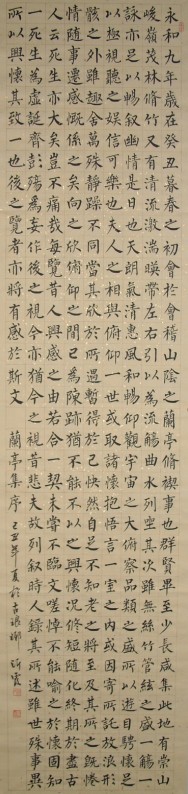 永和九年歲在癸丑暮春之初會於會稽山陰之蘭亭脩禊事也群賢畢至少長咸集此地有崇山
峻嶺茂林修竹又有清流激湍暎帶左右引以為流觴曲水列坐其次雖無絲竹管絃之盛一觴一
詠亦足以暢敘幽情是日也天朗氣清惠風和暢仰觀宇宙之大俯察品類之盛所以遊目騁懷足
以極視聽之娛信可樂也夫人之相與俯仰一世或取諸懷抱悟言一室之內或因寄所託放浪形
骸之外雖趣舍萬殊靜躁不同當其欣於所遇暫得於己快然自足不知老之將至及其所之既惓
情隨事遷感慨係之矣向之所欣俛仰之間已為陳跡猶不能不以之興懷況修短隨化終期於盡古
人云死生亦大矣豈不痛哉每覽昔人興感之由若合一契未嘗不臨文嗟悼不能喻之於懷固知
一死生為虛誕齊彭殤為妄作後之視今亦猶今之視昔悲夫故列敘時人錄其所述雖世殊事異
所以興懷其致一也後之覽者亦將有感於斯文 蘭亭集序 己丑年夏於古琅琊